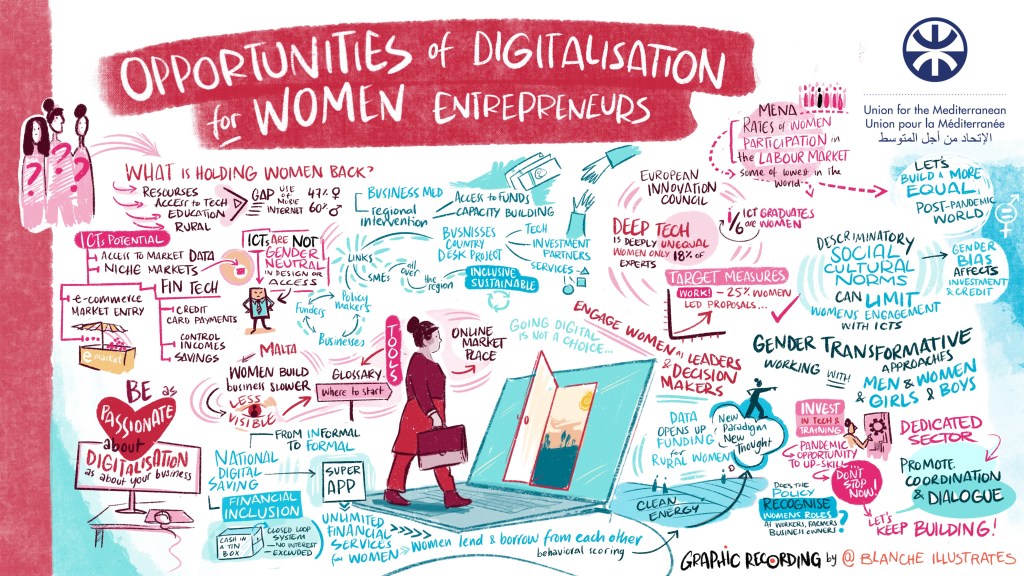 OPPORTUNITIES of DIGITALISATION
for WOMEN ENTREPRENEURS
Union for the Mediterranean
Union pour la Méditerranée
الإتحاد من أجل المتوسط
WHAT IS HOLDING WOMEN BACK?
RESOURSES
ACCESS to TECH
EDUCATION
RURAL
GAP
USE
of
MOBILE
INTERNET
47% ♀
60% ♂
ICTs POTENTIAL
ACCESS TO MARKET DATA
NICHE MARKETS
e-commerce
MARKET ENTRY
e market
FIN TECH
CREDIT
CARD PAYMENTS
CONTROL
INCOMES
SAVINGS
ICTs ARE NOT
GENDER
NEUTRAL
IN DESIGN or
ACCESS
BUSINESS MED
regional
intervention
ACCESS to FUNDS
CAPACITY BUILDING
BUSNISSES
COUNTRY
DESK PROJECT
TECH
INVESTMENT
PARTNERS
SERVICES
LINKS
SMEs
all
over
the
region
INCLUSIVE
SUSTAINABLE
Policy
makers
Funders
Businesses
MALTA
WOMEN BUILD
business SLOWER
LESS
VISIBLE
GLOSSARY
Where to start
TOOLS
ONLINE
MARKET
PLACE
GOING DIGITAL
IS NOT A CHOICE...
MENA
RATES of WOMEN
PARTICIPATION in
the LABOUR MARKET
some of lowest in the
world
EUROPEAN
INNOVATION
COUNCIL
DEEP TECH
IS DEEPLY UNEQUAL
WOMEN ONLY 18% OF
EXPERTS
1/6 ICT GRADUATES
are WOMEN
TARGET MEASURES
WORK! - 25% WOMEN
LED PROPOSALS...
LET'S
BUILD A MORE
EQUAL,
POST-PANDEMIC
WORLD
DESCRIMINATORY
SOCIAL
CULTURAL
NORMS
CAN LIMIT
WOMENS' ENGAGEMENT
WITH ICTS
GENDER
BIAS
AFFECTS
INVESTMENT
& CREDIT
ENGAGE WOMEN as LEADERS
& DECISION
MAKERS
GENDER TRANSFORMATIVE
APPROACHES
WORKING WITH
MEN & WOMEN
& GIRLS & BOYS
BE as
PASSIONATE
about
DIGITALISATION
as about your business
FROM INFORMAL
TO FORMAL
NATIONAL
DIGITAL
SAVING
FINANCIAL
INCLUSION
CASH IN
A TIN
BOX
CLOSED LOOP
SYSTEM
NO INTEREST
EXCLUDED
SUPER
APP
UNLIMITED
FINANCIAL
SERVICES
for WOMEN
Women lend & borrow from each other
behavioral scoring
DATA
OPENS UP
FUNDING
for
RURAL WOMEN
New
Paradigm
New
Thought
CLEAN
ENERGY
INVEST
IN TECH &
TRAINING
PANDEMIC
OPPORTUNITY
TO UP-SKILL...
DON'T
STOP
NOW!
DOES THE
POLICY
RECOGNISE
WOMENS ROLES
AS WORKERS, FARMERS
BUSINESS OWNERS?
LET'S
KEEP BUILDING!
DEDICATED
SECTOR
PROMOTE
COORDINATION
& DIALOGUE
GRAPHIC RECORDING by @ BLANCHE ILLUSTRATES